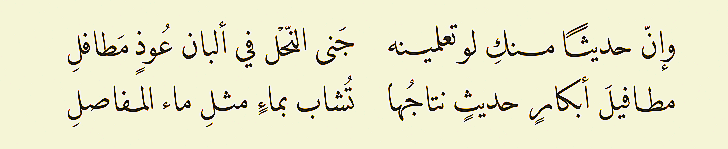 وإنّ حديثًا منكِ لو تعلمينه جَنى النّحْل في ألبان عُوذٍ مَطافلِ
مطافيلَ أبكارٍ حديثٍ نتاجُها تُشاب بماءٍ مثلِ ماء المفاصلِ